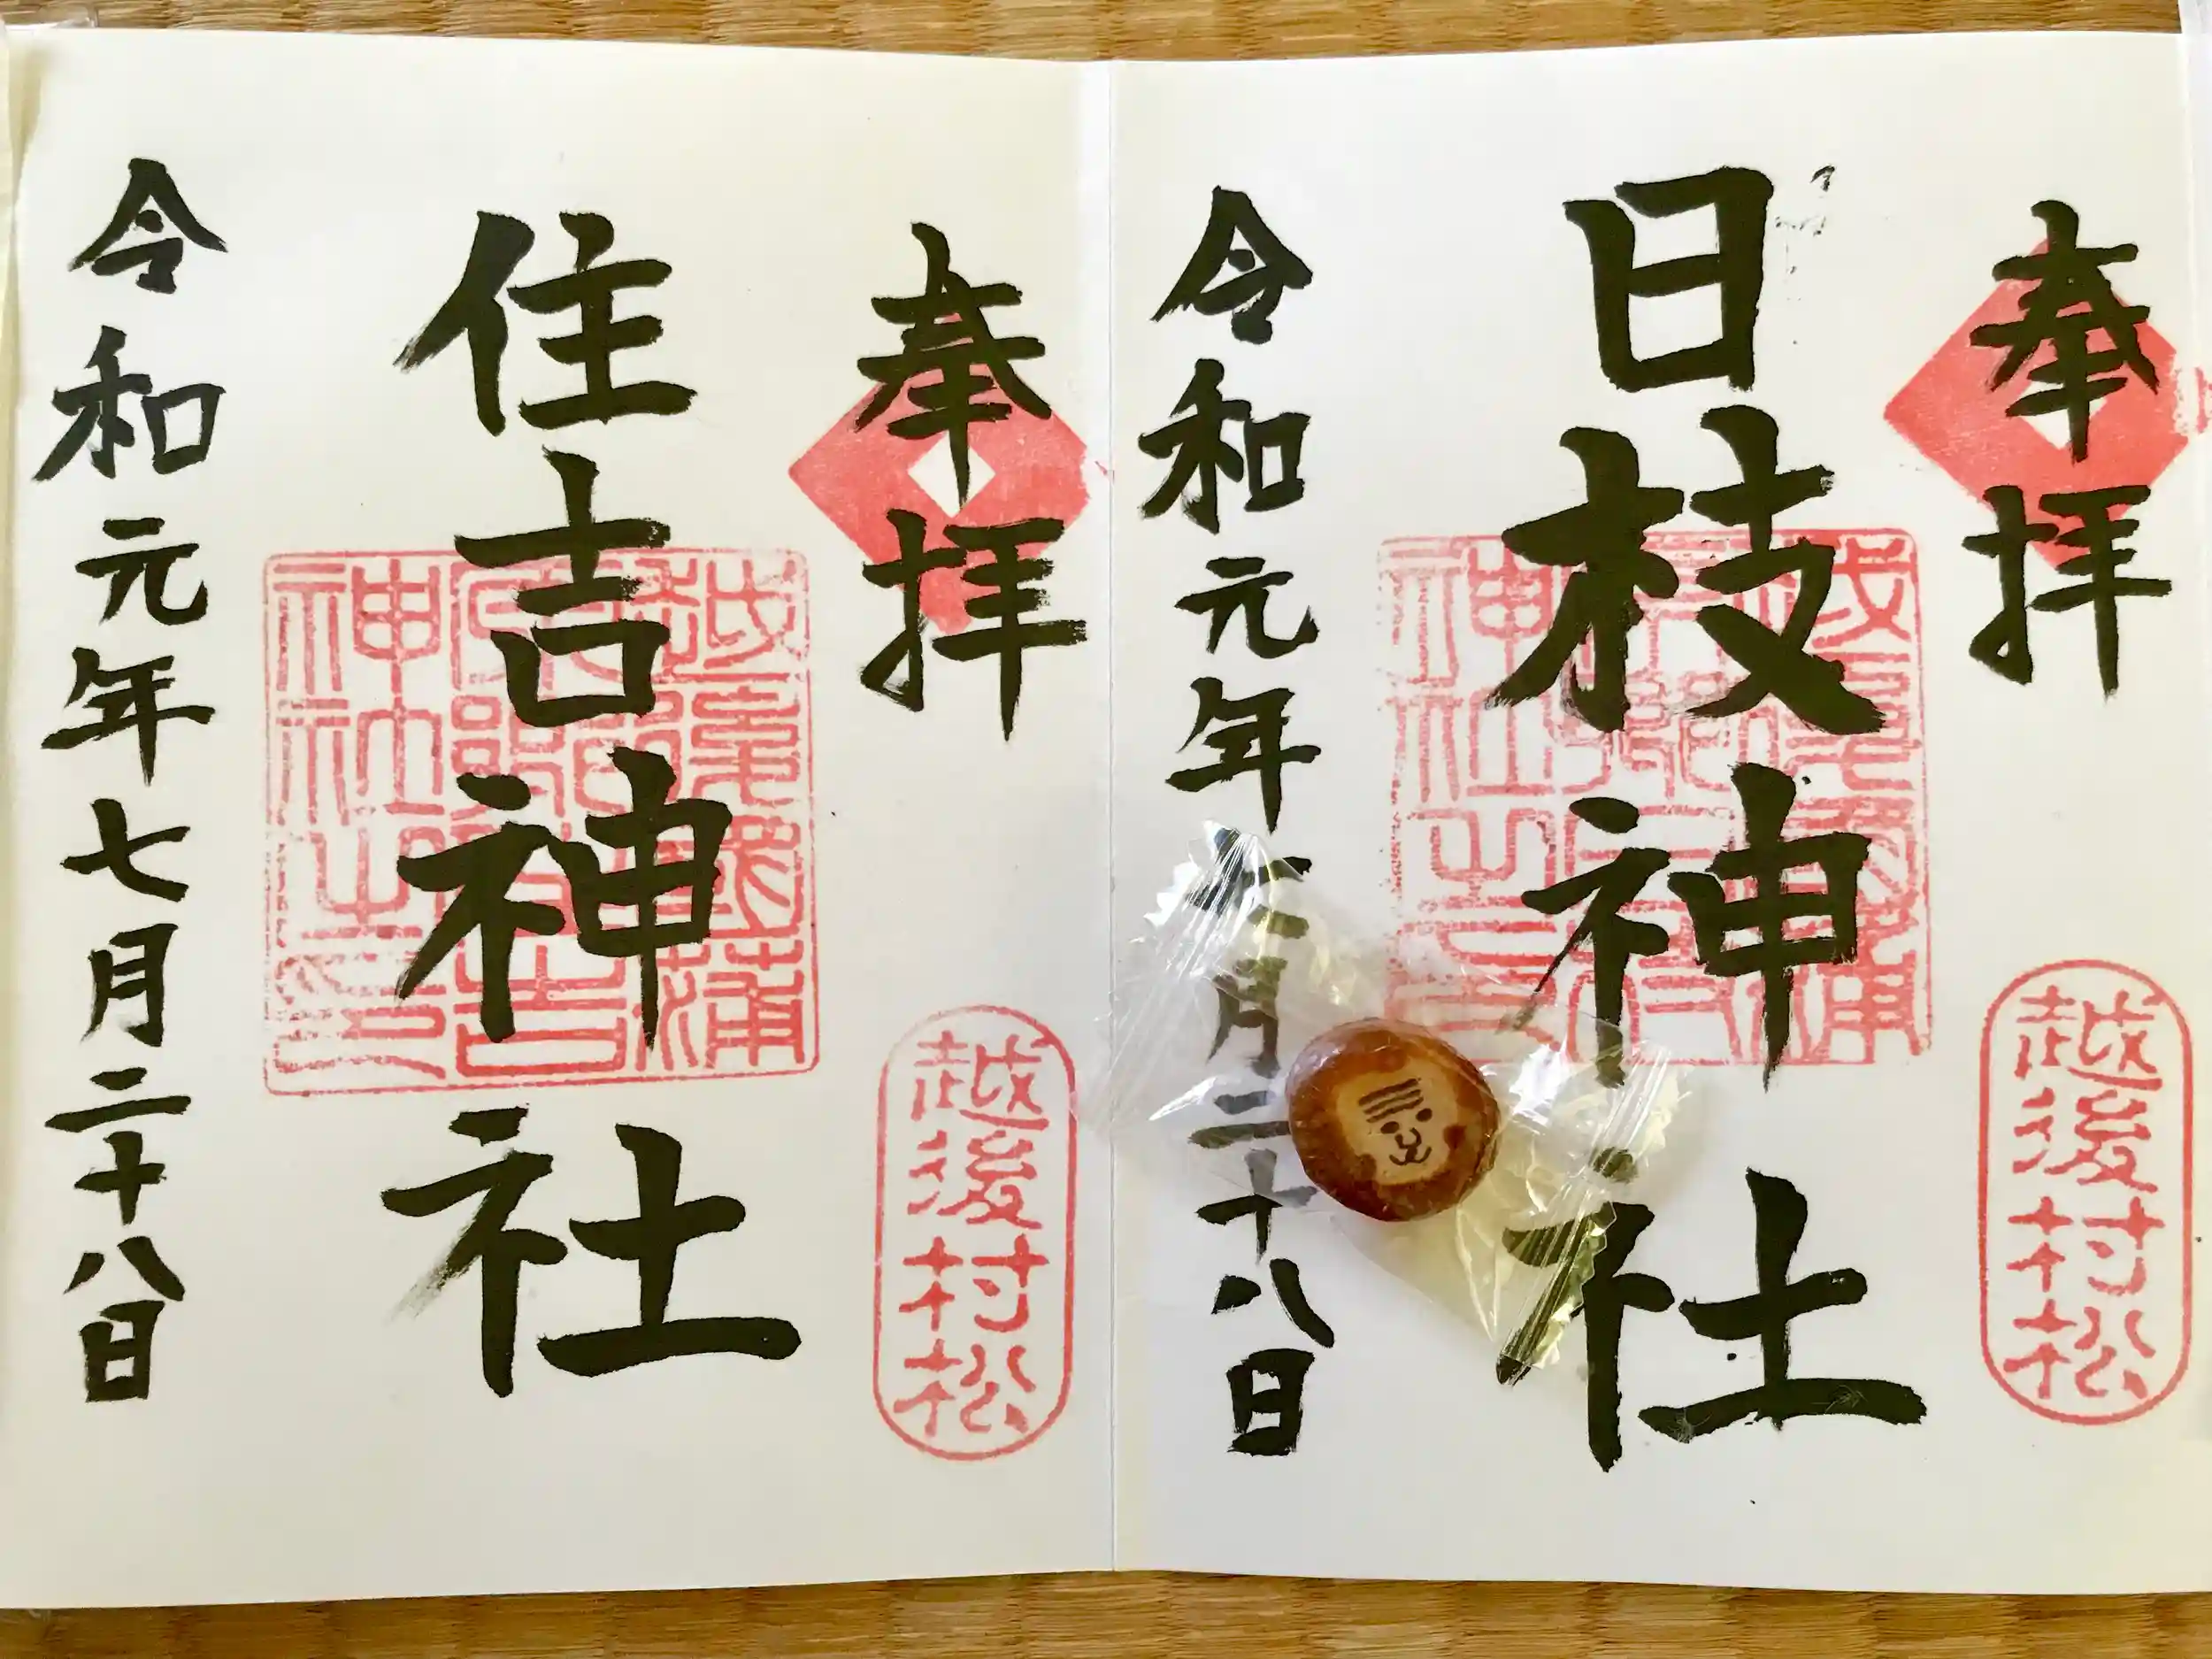 奉拝
越後村松
日枝神社
令和元年七月二十八日
奉拝
越後村松
住吉神社
令和元年七月二十八日